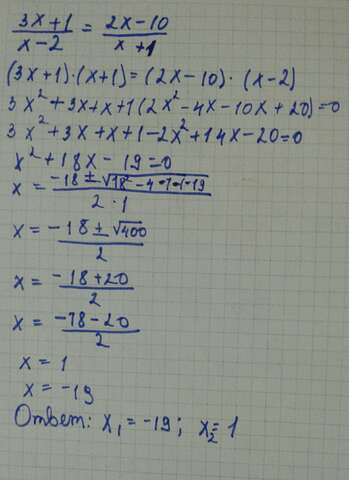 (3x+1)/(x-2) = (2x-10)/(x+1)
(3x+1)·(x+1)=(2x-10)·(x-2)
3x²+3x+x+1(2x²-4x-10x+20)=0
3x²+3x+x+1-2x²+14x-20=0
x²+18x-19=0
x = (-18±√(18²-4·1·(-19))/(2·1)
x = (-18±√400)/2
x = (-18+20)/2
x = (-18-20)/2
x = 1
x = -19
Ответ: x₁=-19; x₂=1